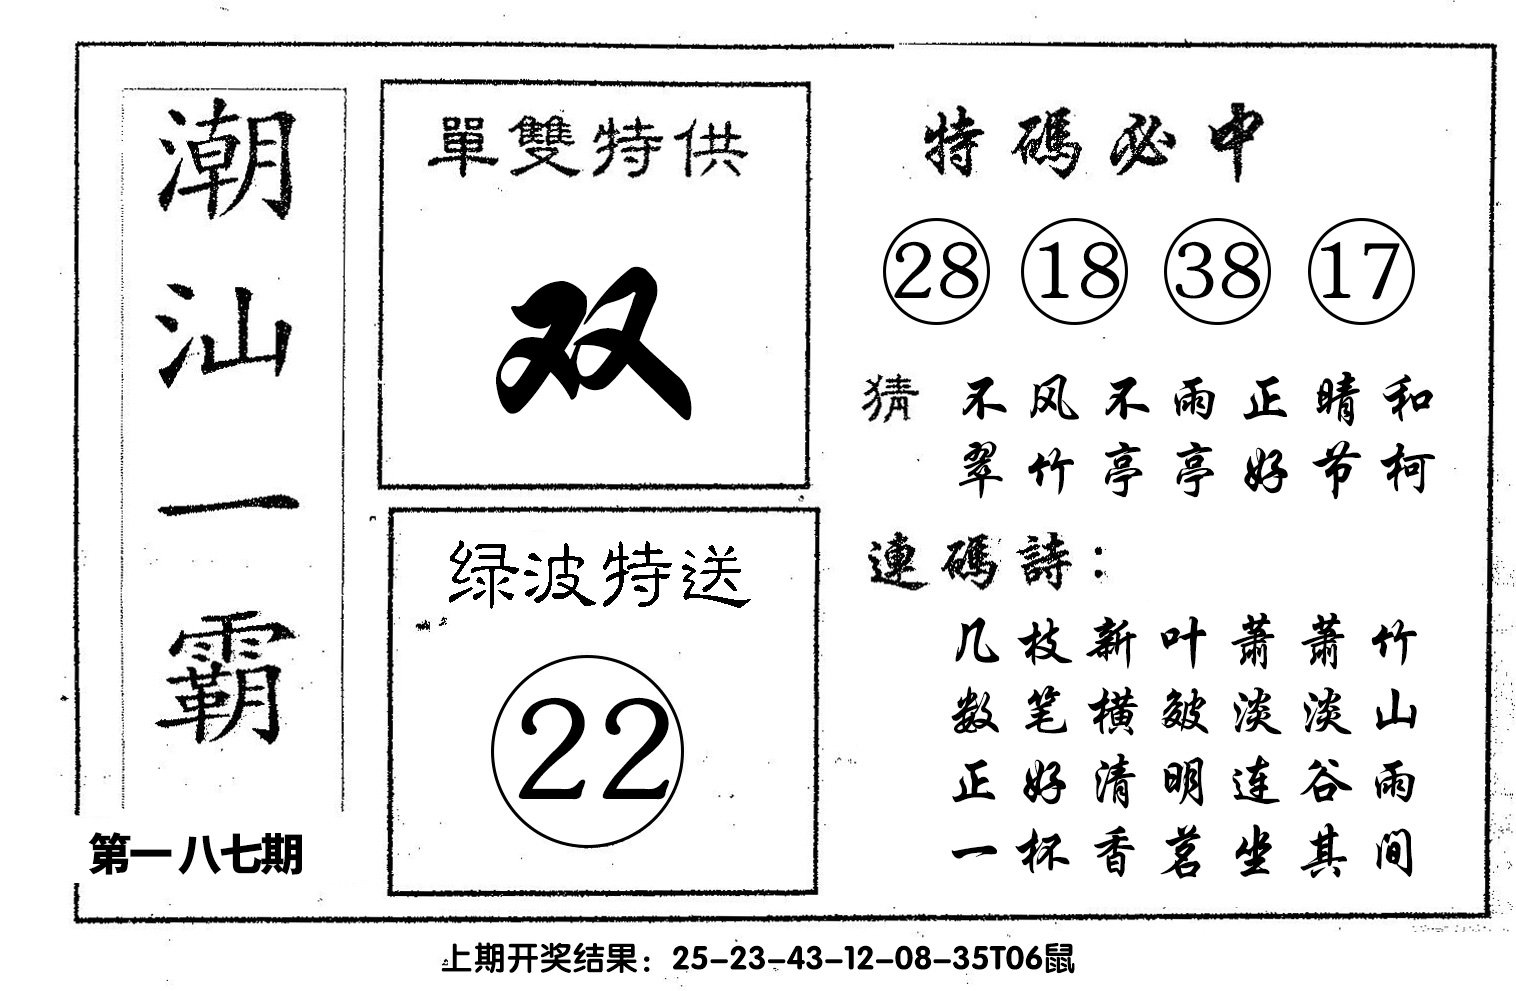 潮汕一霸
第一八七期
單雙特供
双
绿波特送
22
特碼必中
28 18 38 17
猜 不风不雨正晴和
翠竹亭亭好节柯
連碼詩：
几枝新叶蕭蕭竹
数笔横皴淡淡山
正好清明连谷雨
一杯香茗坐其间
上期开奖结果：25-23-43-12-08-35T06鼠